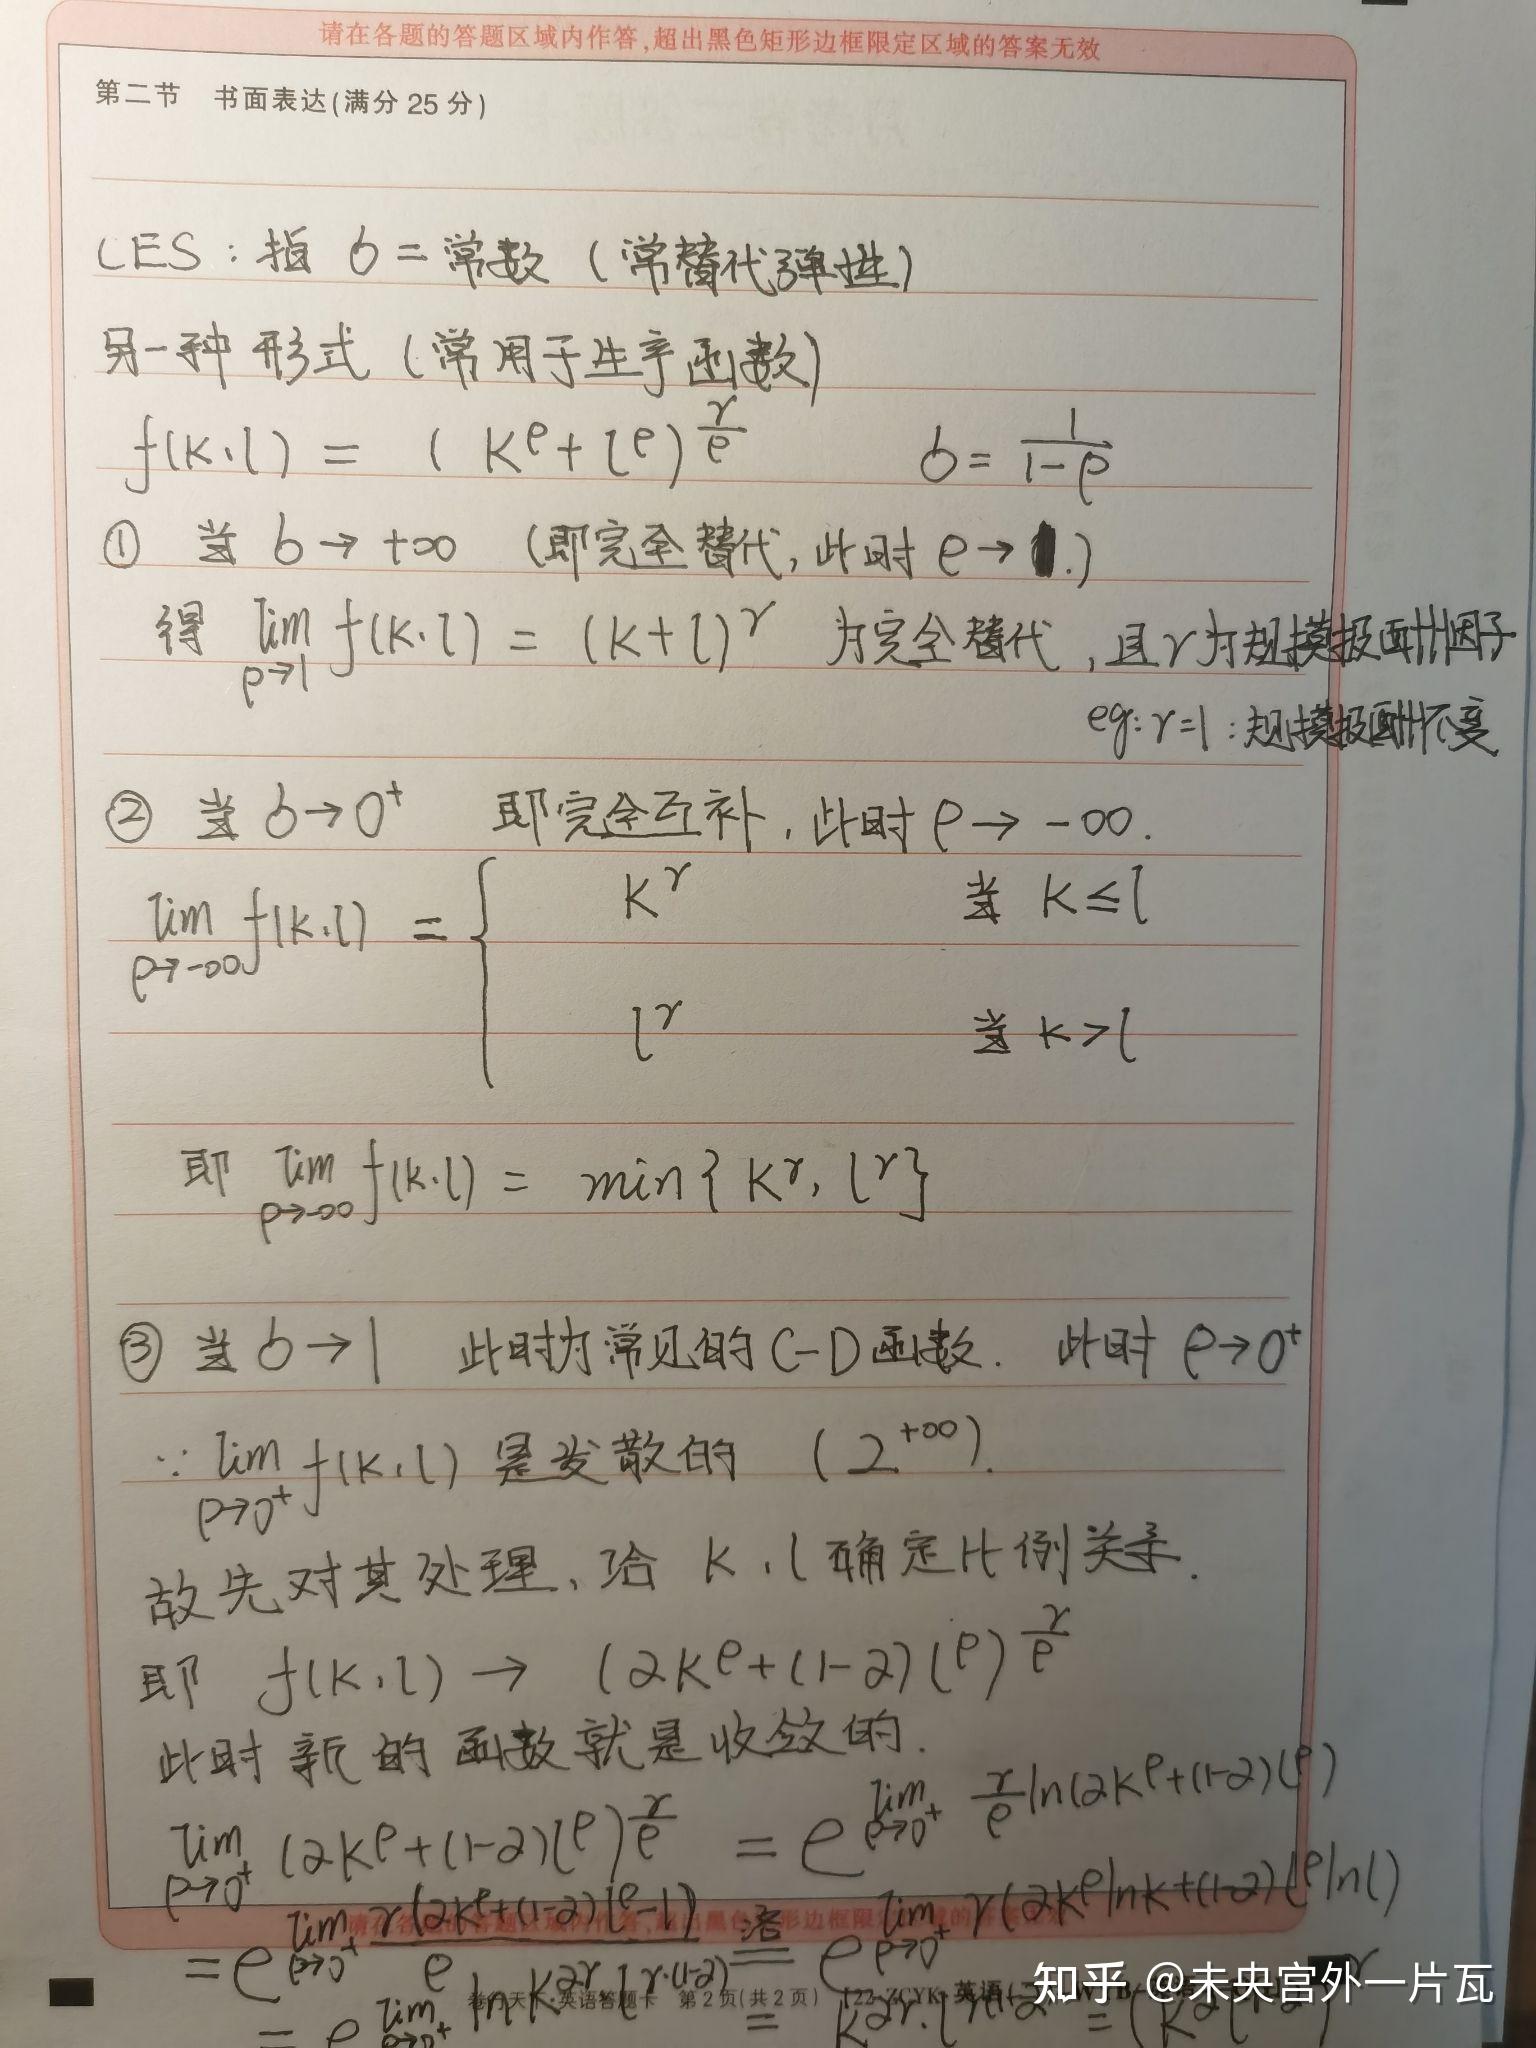 请在各题的答题区域内作答,超出黑色矩形边框限定区域的答案无效
第二节 书面表达(满分25分)
CES:指 σ=常数(常替代弹性)
另一种形式(常用于生产函数)
f(k,l) = (k^ρ+l^ρ)^(γ/ρ) σ=1/(1-ρ)
① 当 σ→+∞ (即完全替代,此时ρ→1.)
得 lim_(ρ→1) f(k,l) = (k+l)^γ 为完全替代,且γ为规模报酬因子
eg:γ=1:规模报酬不变
② 当 σ→0⁺ 即完全互补,此时ρ→-∞.
lim_(ρ→-∞) f(k,l) = { k^γ 当 k≤l
l^γ 当 k>l
即 lim_(ρ→-∞) f(k,l) = min{k^γ, l^γ}
③ 当 σ→1 此时为常见的C-D函数. 此时 ρ→0⁺
∵ lim_(ρ→0⁺) f(k,l) 是发散的 (2^(+∞)).
故先对其处理,给 k,l 确定比例关系.
即 f(k,l) → (αk^ρ+(1-α)l^ρ)^(γ/ρ)
此时新的函数就是收敛的.
lim_(ρ→0⁺) (αk^ρ+(1-α)l^ρ)^(γ/ρ) = e^(lim_(ρ→0⁺) γ/ρ ln(αk^ρ+(1-α)l^ρ))
= e^(lim_(ρ→0⁺) γ(αk^ρ+(1-α)l^ρ-1)/ρ) 洛= e^(lim_(ρ→0⁺) γ(αk^ρlnk+(1-α)l^ρlnl)
= e^(lim_(ρ→0⁺) lnk^(αγ)l^(γ·(1-α))) =
请在各题的答题区域内作答,超出黑色矩形边框限定区域的答案无效
英语答题卡 第2页(共2页)
知乎 @未央宫外一片瓦